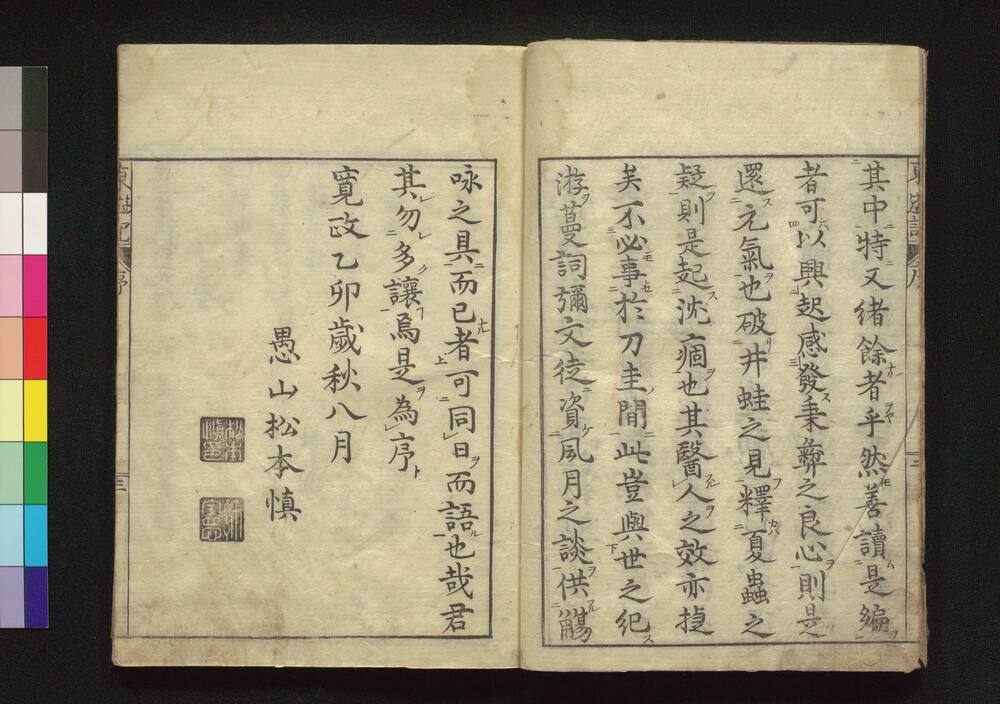 其中特又緒餘者乎然善讀是編
者可以興起感發秉彝之良心則是
還元氣也破井蛙之見釋夏蟲之
疑則是起沈痼也其醫人之效亦捷
矣不必事於刀圭間此豈與世之紀
游蔓詞彌文徒資風月之談供觴
咏之具而已者可同日而語也哉君
其勿多讓焉是為序
寛政乙卯歳秋八月
愚山松本慎
松本慎印
東遊記 序 三